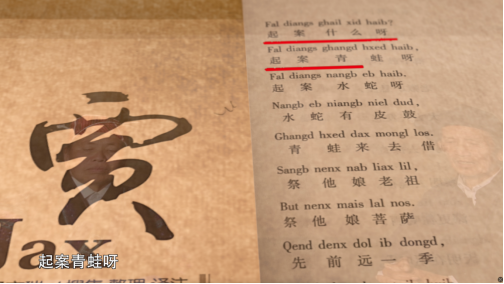 Fal diangs ghail xid haib?
起案什么呀
Fal diangs ghangd hxed haib,
起案青蛙呀
Fal diangs nangb eb haib.
起案水蛇呀
Nangb eb niangb niel dud,
水蛇有皮鼓
Ghangd hxed dax mongl los.
青蛙来去借
Sangb nenx nab liax lil,
祭他娘老祖
But nenx mais lal nos.
祭他娘菩萨
Qend denx dol ib dongd,
先前远一季
贾
Jax
起案青蛙呀